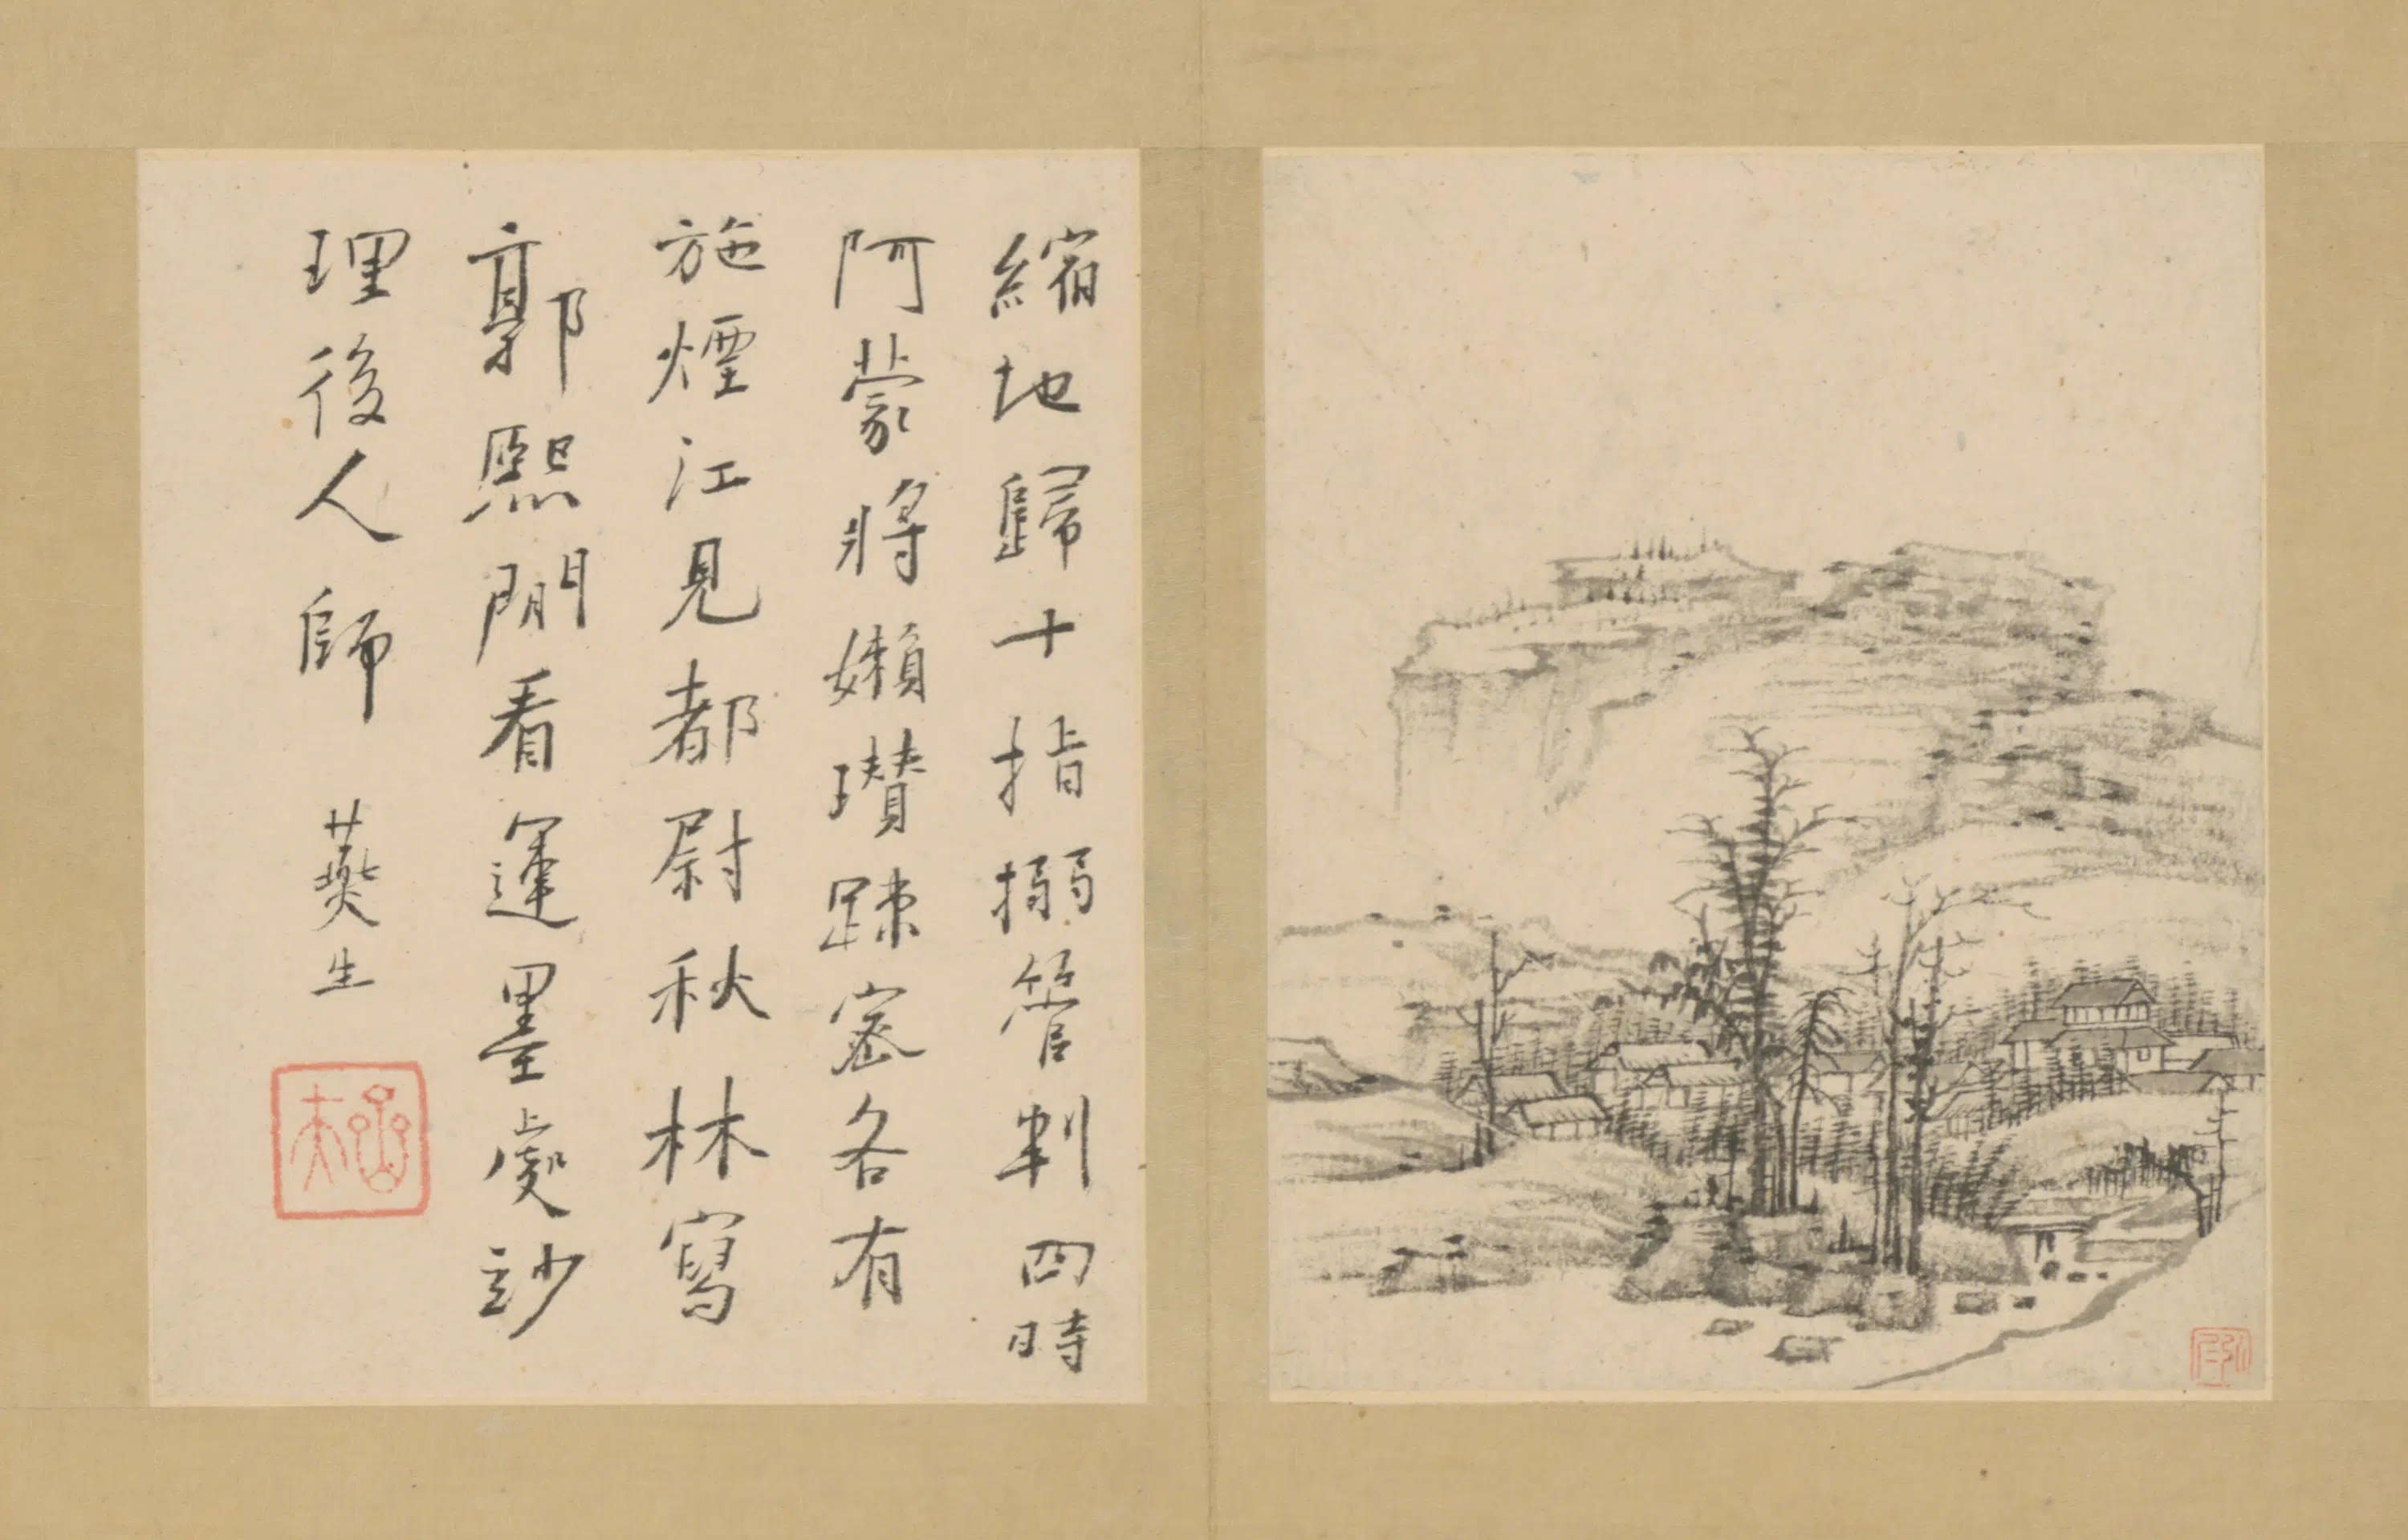 縮地歸十指搦管判四時
阿蒙將嬾瓚踈密各有
施煙江見都尉秋林寫
郭熙閒看運墨處玅
理後人師 燕生